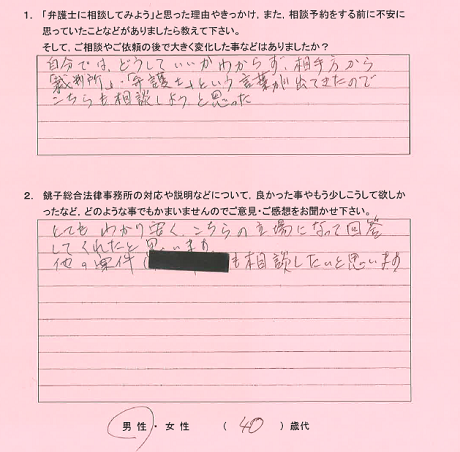 1. 「弁護士に相談してみよう」と思った理由やきっかけ,また,相談予約をする前に不安に
思っていたことなどがありましたら教えて下さい。
そして,ご相談やご依頼の後で大きく変化した事などはありましたか?
自分では、どうしていいかわからず、相手方から
「裁判所」・「弁護士」という言葉が出てきたので
こちらも相談しようと思った
2. 銚子総合法律事務所の対応や説明などについて,良かった事やもう少しこうして欲しか
ったなど,どのような事でもかまいませんのでご意見・ご感想をお聞かせ下さい。
とてもわかり安く、こちらの立場になって回答
してくれたと思います
他の案件( も相談したいと思います
男性・女性 ( 40 )歳代